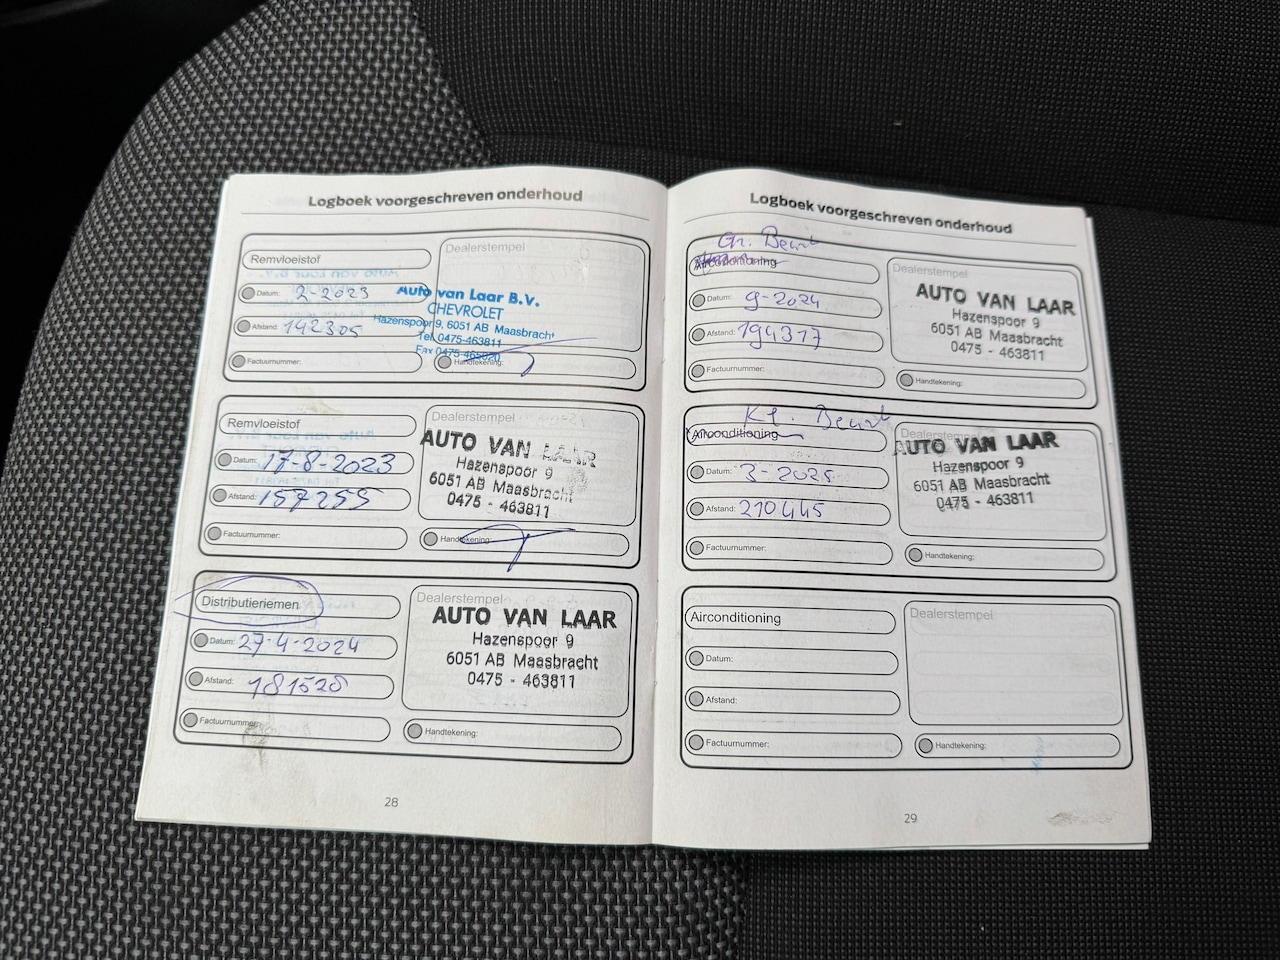 Logboek voorgeschreven onderhoud
Remvloeistof
Dealerstempel
Datum: 2-2023
Afstand: 142305
Factuurnummer:
Auto van Laar B.V.
CHEVROLET
Hazenspoor 9, 6051 AB Maasbracht
Tel. 0475-463811
Fax 0475-465020
Handtekening:
Remvloeistof
Dealerstempel
Datum: 17-8-2023
Afstand: 157255
Factuurnummer:
AUTO VAN LAAR
Hazenspoor 9
6051 AB Maasbracht
0475 - 463811
Handtekening:
Distributieriemen
Dealerstempel
Datum: 27-4-2024
Afstand: 181528
Factuurnummer:
AUTO VAN LAAR
Hazenspoor 9
6051 AB Maasbracht
0475 - 463811
Handtekening:
28
Logboek voorgeschreven onderhoud
Gr. Beurt
Airconditioning
Dealerstempel
Datum: 9-2024
Afstand: 194317
Factuurnummer:
AUTO VAN LAAR
Hazenspoor 9
6051 AB Maasbracht
0475 - 463811
Handtekening:
Kl. Beurt
Airconditioning
Dealerstempel
Datum: 3-2025
Afstand: 210445
Factuurnummer:
AUTO VAN LAAR
Hazenspoor 9
6051 AB Maasbracht
0475 - 463811
Handtekening:
Airconditioning
Dealerstempel
Datum:
Afstand:
Factuurnummer:
Handtekening:
29